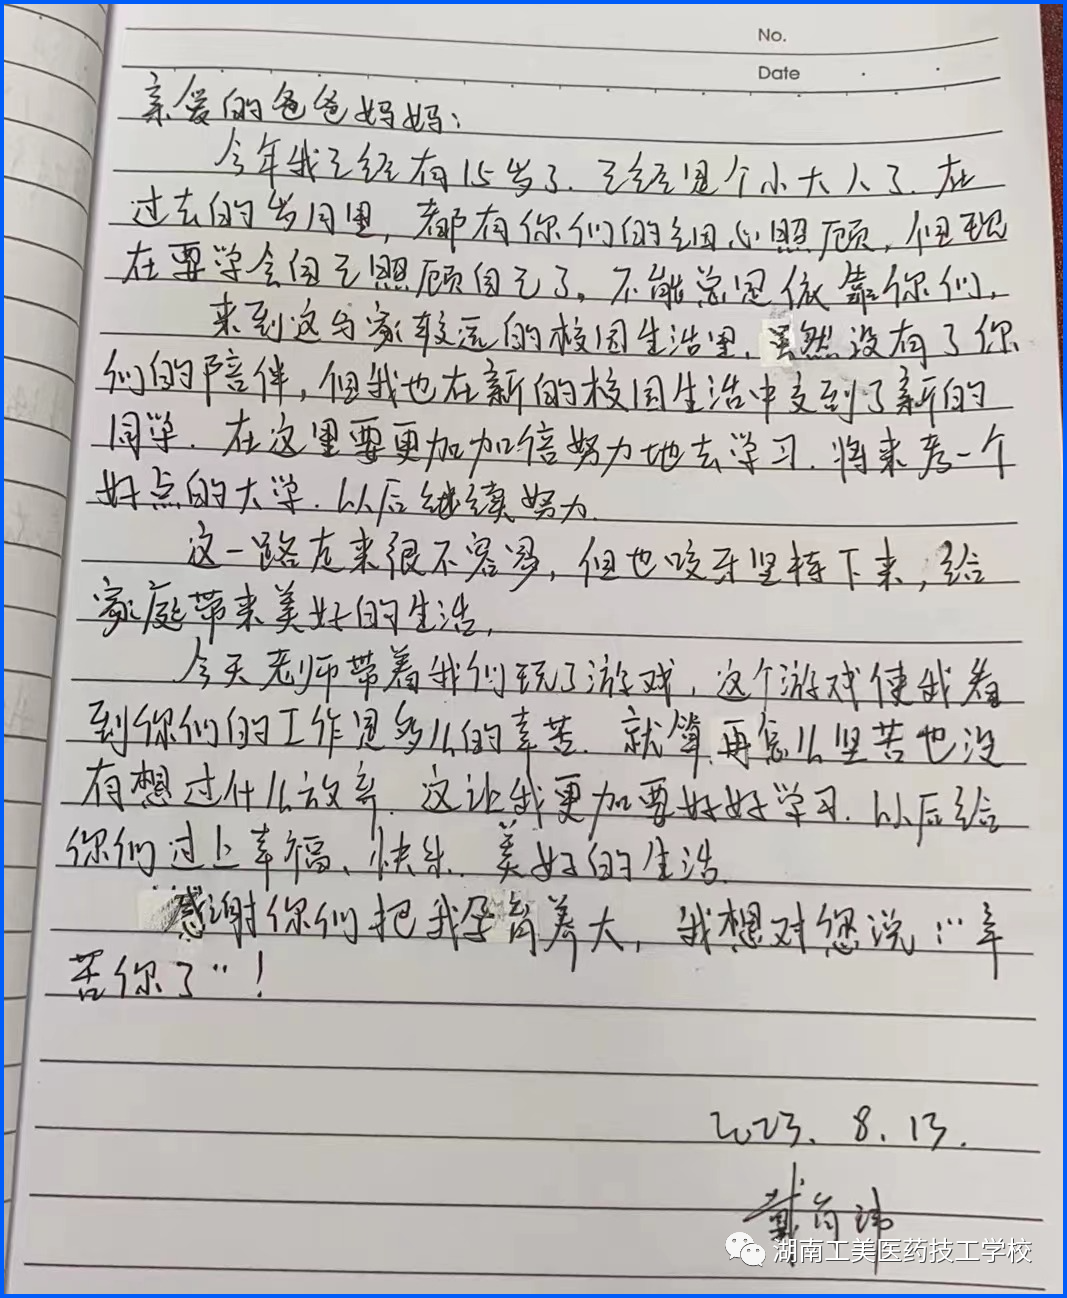 No.
Date
亲爱的爸爸妈妈：
今年我已经有15岁了.已经是个小大人了.在
过去的岁月里，都有你们的细心照顾，但现
在要学会自己照顾自己了。不能总是依靠你们，
来到这与家较远的校园生活里、虽然没有了你
们的陪伴，但我也在新的校园生活中交到了新的
同学.在这里要更加加倍努力地去学习.将来考一个
好点的大学.以后继续努力.
这一路走来很不容易，但也咬牙坚持下来，给
家庭带来美好的生活，
今天老师带着我们玩了游戏，这个游戏使我看
到你们的工作是多么的辛苦.就算再怎么坚苦也没
有想过什么放弃.这让我更加要好好学习.以后给
你们过上幸福、快乐.美好的生活.
感谢你们把我孕育养大，我想对您说：“辛
苦你了”！
2023.8.13.
戴
湖南工美医药技工学校